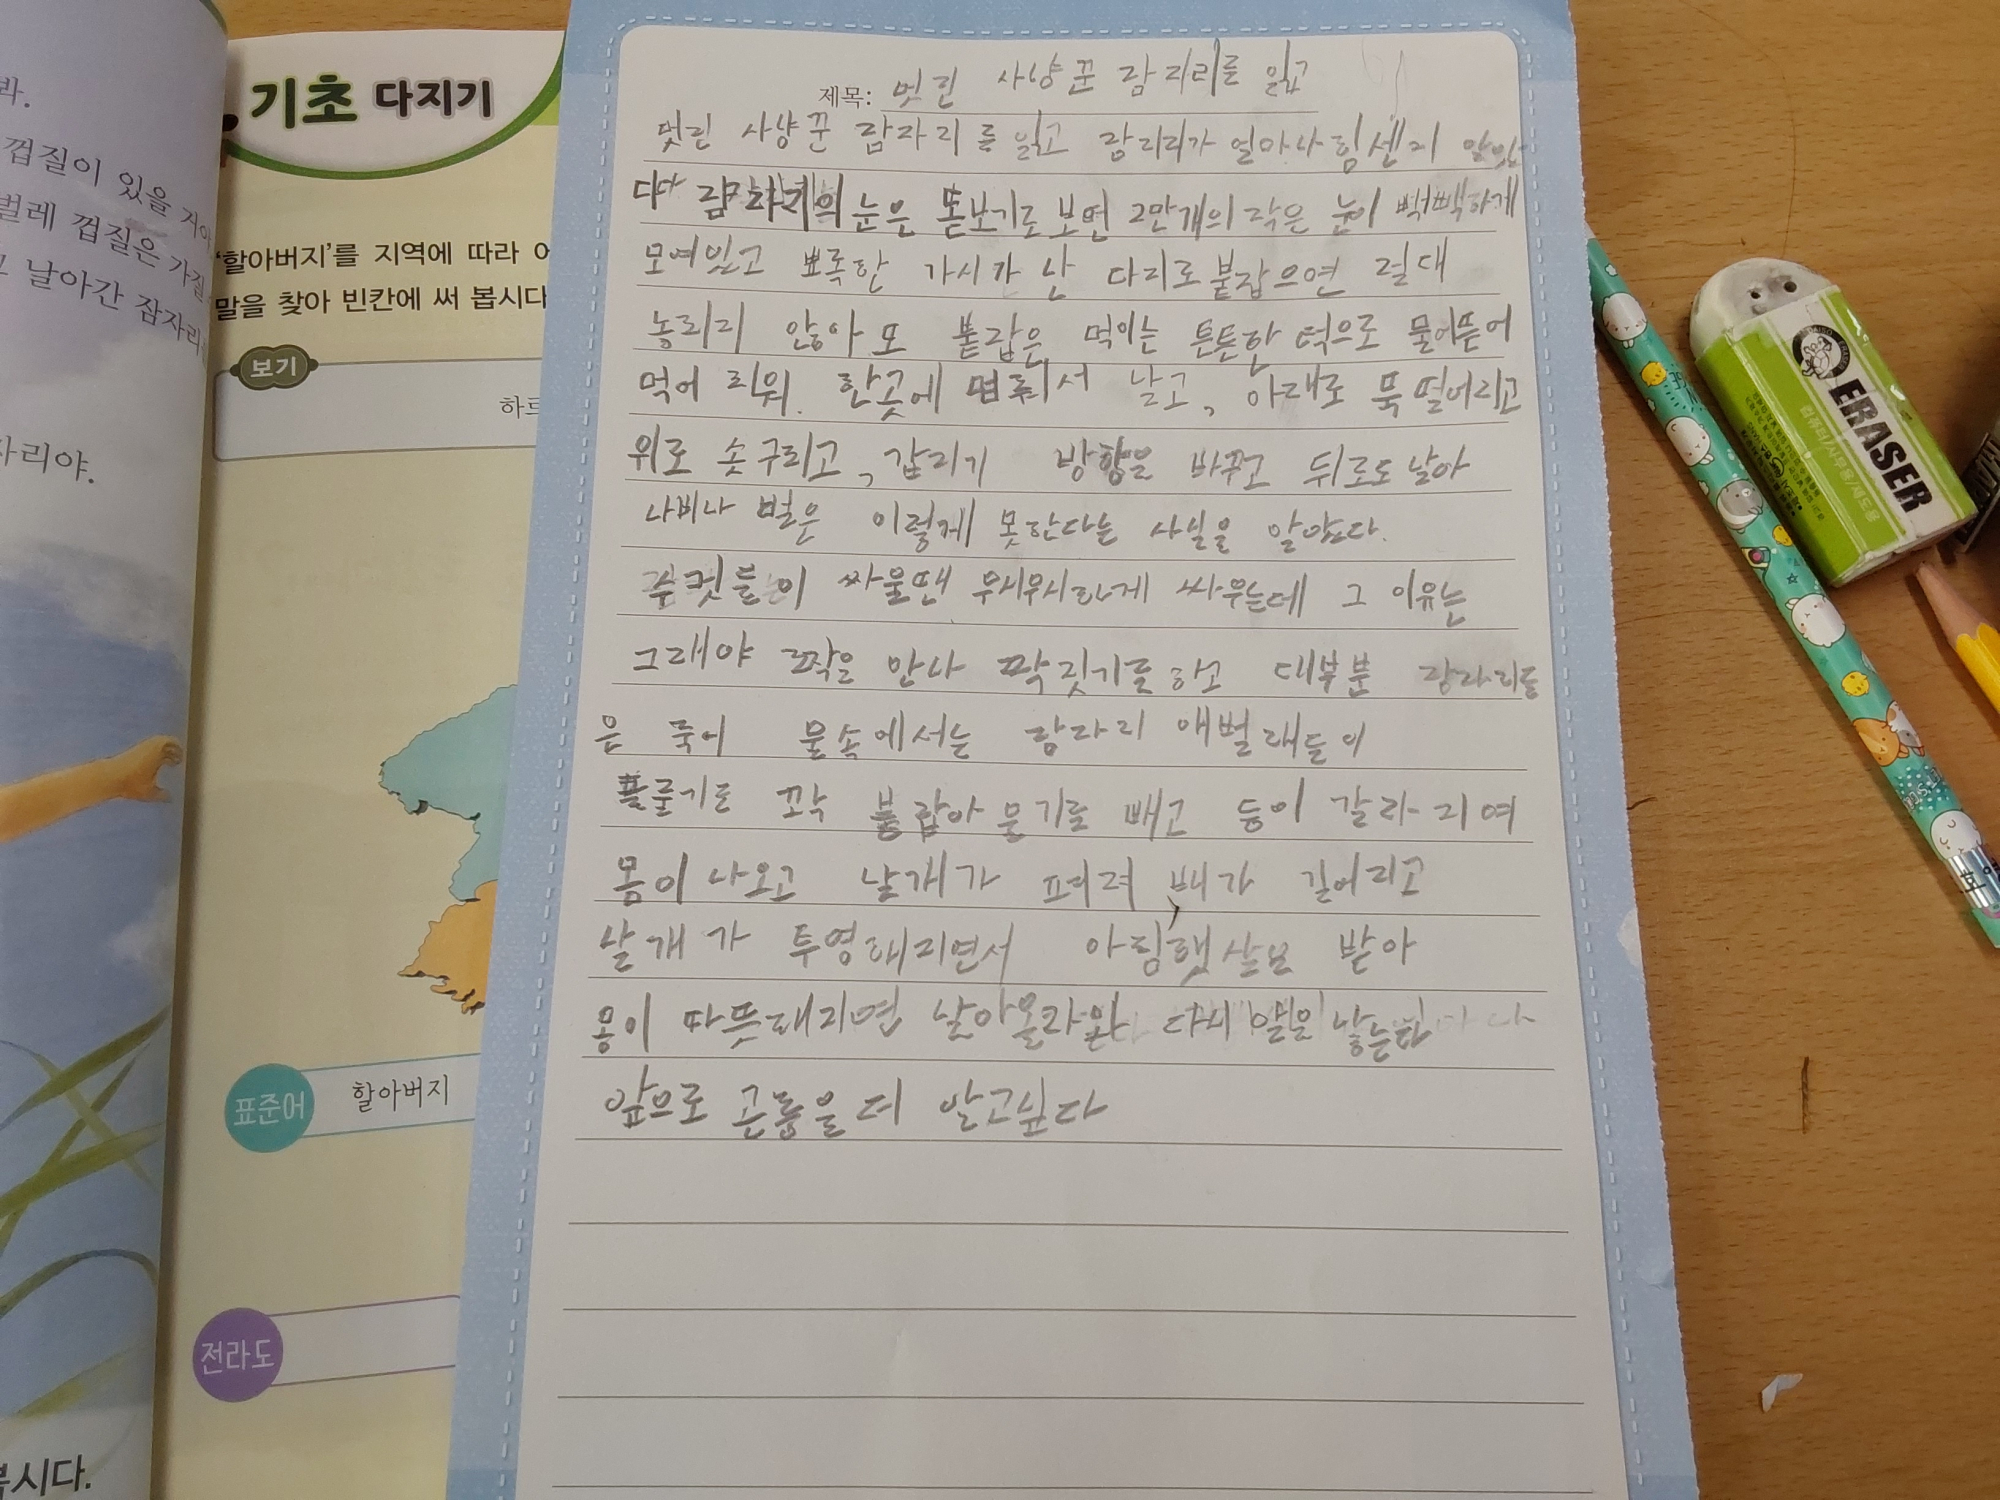 라.
껍질이 있을 거야
벌레 껍질은 가질
고 날아간 잠자리
자리야.
봅시다.
기초 다지기
'할아버지'를 지역에 따라 어
말을 찾아 빈칸에 써 봅시다
보기
하르
표준어
할아버지
전라도
제목: 멋진 사냥꾼 잠자리를 읽고
멋진 사냥꾼 잠자리를 읽고 잠자리가 얼마나 힘센지 알았
다 잠자리의 눈은 돋보기로 보면 2만개의 작은 눈이 빽빽하게
모여있고 뾰족한 가시가 난 다리로 붙잡으면 절대
놓치지 않아 또 붙잡은 먹이는 튼튼한 턱으로 물어뜯어
먹어 치워. 한곳에 멈춰서 날고, 아래로 뚝 떨어지고
위로 솟구치고, 갑자기 방향을 바꾸고 뒤로도 날아
나비나 벌은 이렇게 못한다는 사실을 알았다.
수컷들이 싸울땐 무시무시하게 싸우는데 그 이유는
그래야 짝을 만나 짝짓기를 하고 대부분 잠자리들
은 죽어 물속에서는 잠자리 애벌래들이
풀줄기를 꼬악 붙잡아 물기를 빼고 등이 갈라지며
몸이 나오고 날개가 펴져, 배가 길어지고
날개가 투명해지면서 아침햇살을 받아
몸이 따뜻해지면 날아올라와 다시 알을 낳는다
앞으로 곤충을 더 알고싶다
ERASER
컴퓨터/사무용/제도용